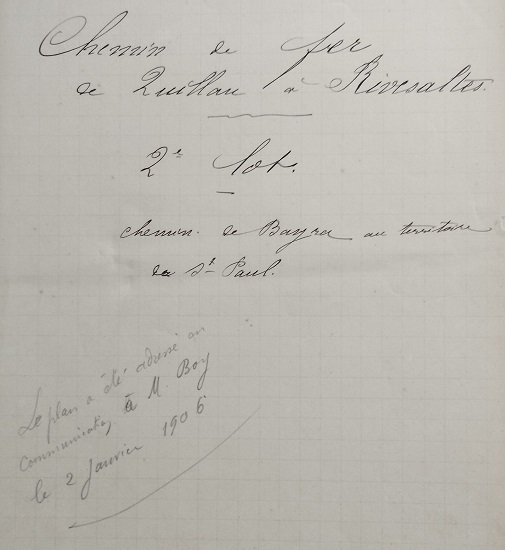 Chemin de fer
de Quillan à Rivesaltes.
2e lot.
chemin de Bayra au territoire
de St Paul.
Le plan a été adressé en
communication à M Boy
le 2 Janvier 1906